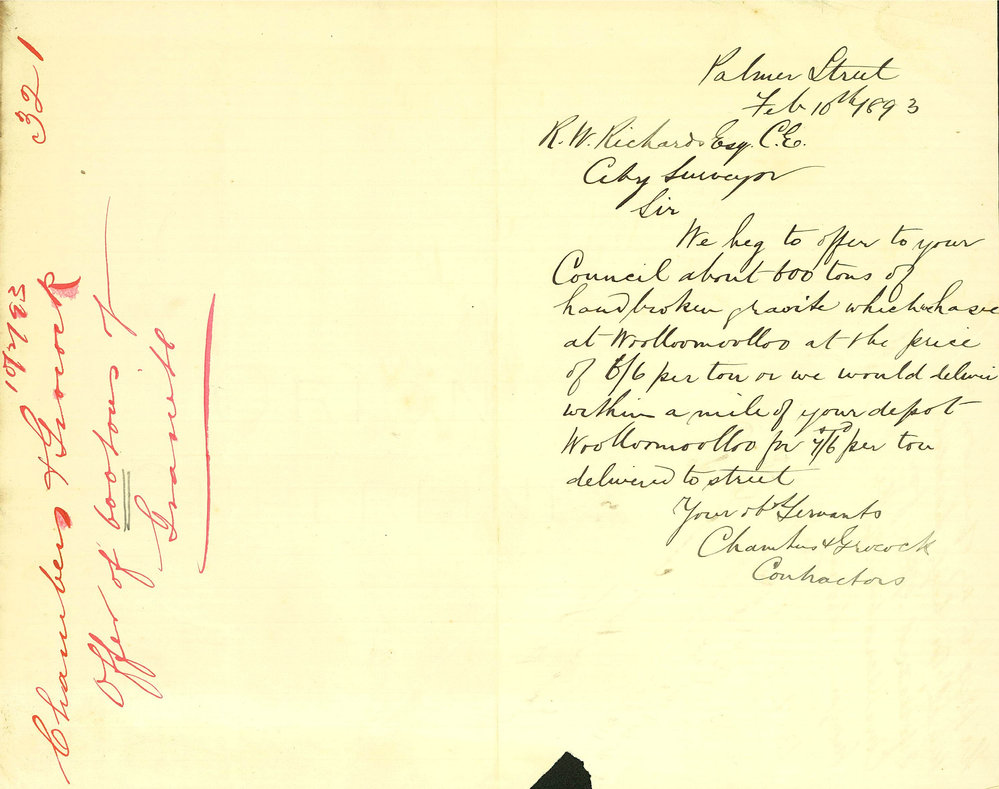 321
Chambers & Grocock
10/2/93
Offer of 600 tons of
Granite
Palmer Street
Feb 10th 1893
R. W. Richards Esq. C.E.
City Surveyor
Sir
We beg to offer to your
Council about 600 tons of
hand broken granite which we have
at Woolloomoolloo at the price
of 6/6 per ton or we would deliver
within a mile of your depot
Woolloomoolloo for 7/6 per ton
delivered to street
Your obt Servants
Chambers & Grocock
Contractors